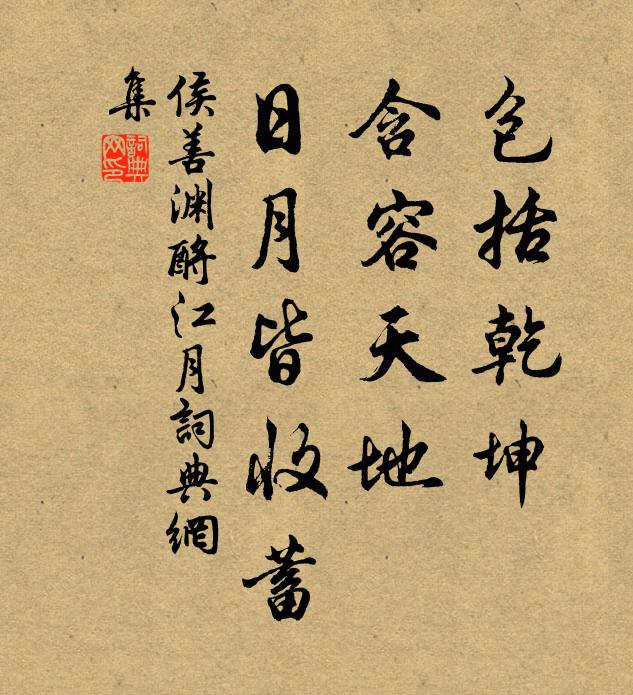 包括乾坤
含容天地
日月皆收蓄
侯善渊酹江月詞典網
集
詞典
网印